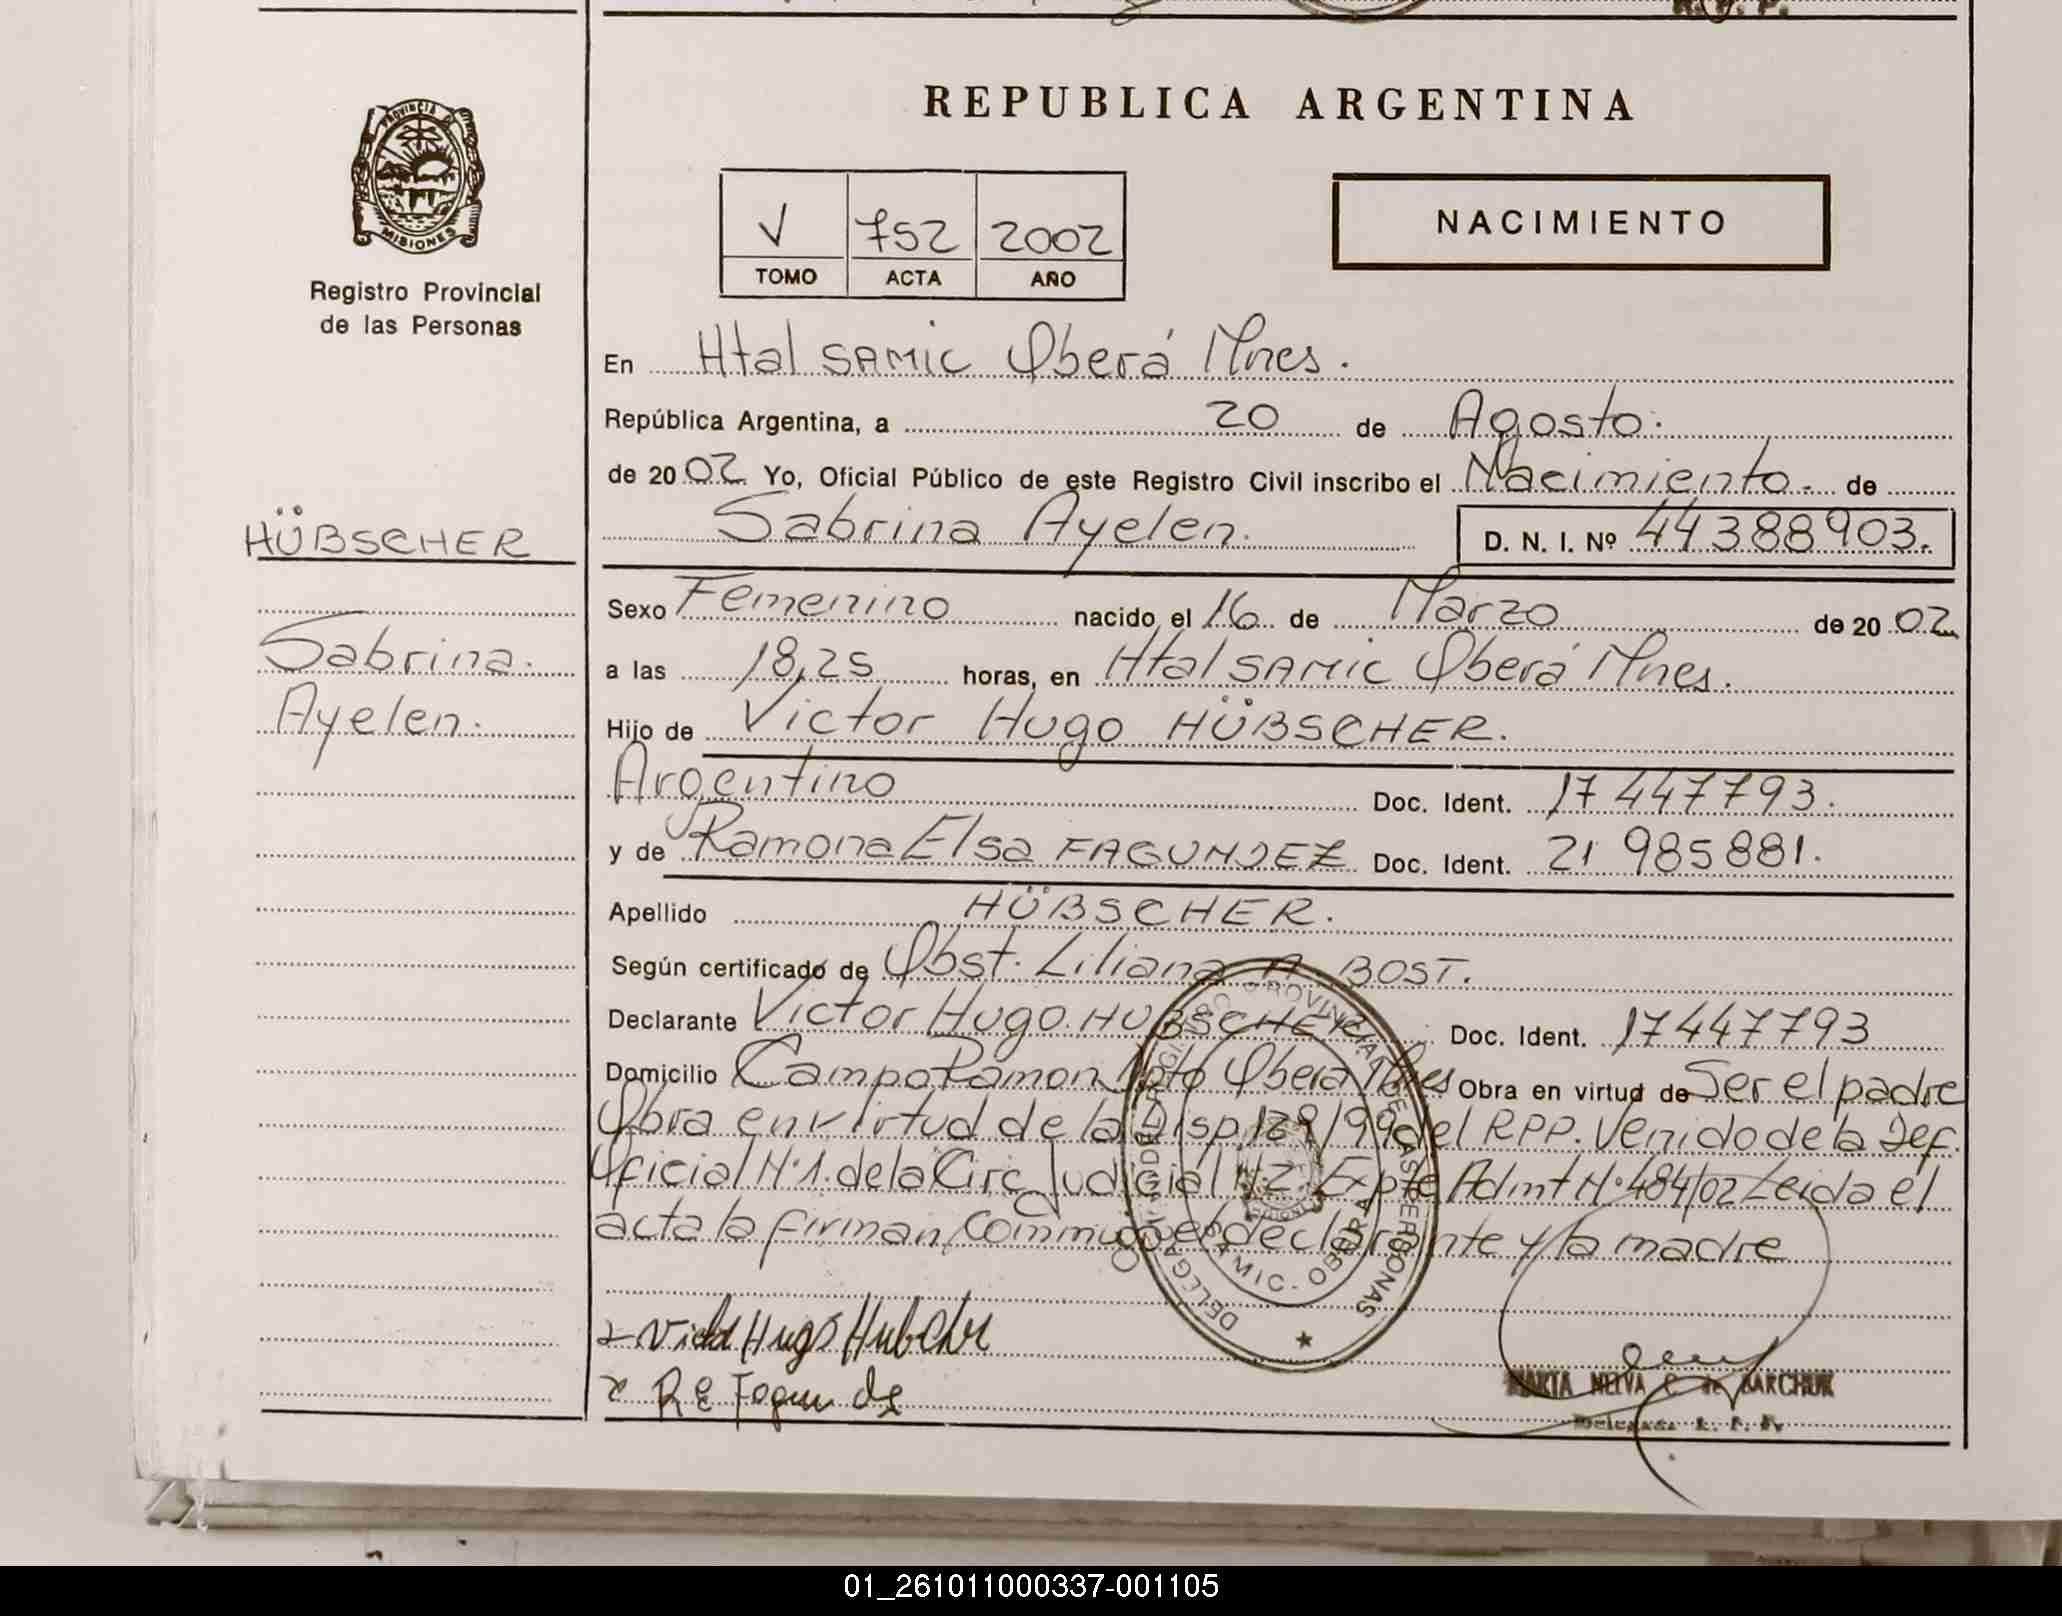 REPUBLICA ARGENTINA
PROVINCIA DE
MISIONES
Registro Provincial
de las Personas
V 752 2002
TOMO ACTA AÑO
NACIMIENTO
En Htal SAMIC Oberá Mnes.
República Argentina, a 20 de Agosto.
de 2002 Yo, Oficial Público de este Registro Civil inscribo el Nacimiento. de
Sabrina Ayelen. D. N. I. Nº 44388903.
HÜBSCHER
Sabrina.
Ayelen.
Sexo Femenino nacido el 16 de Marzo de 2002
a las 18,25 horas, en Htal SAMIC Oberá Mnes.
Hijo de Victor Hugo HÜBSCHER.
Argentino Doc. Ident. 17 447793.
y de Ramona Elsa FAGUNDEZ Doc. Ident. 21 985881.
Apellido HÜBSCHER.
Según certificado de Obst. Liliana A. BOST.
Declarante Victor Hugo HUBSCHER Doc. Ident. 17447793
Domicilio Campo Ramon Dpto Obera Mnes Obra en virtud de Ser el padre
Obra en virtud de la Disp 129/99 del RPP. Venido de la Def.
Oficial Nº1. de la Circ Judicial Nº2 Expte Admt Nº 484/02 Leida el
acta la firman Conmigo el declarante y la madre
REGISTRO PROVINCIAL DE LAS PERSONAS
DELEGACION
SAMIC - OBERA
Victor Hugo Hubcher
R E Fagundez
MARTA NELVA C. de BARCHUK
Delegada R. P. P.
01_261011000337-001105